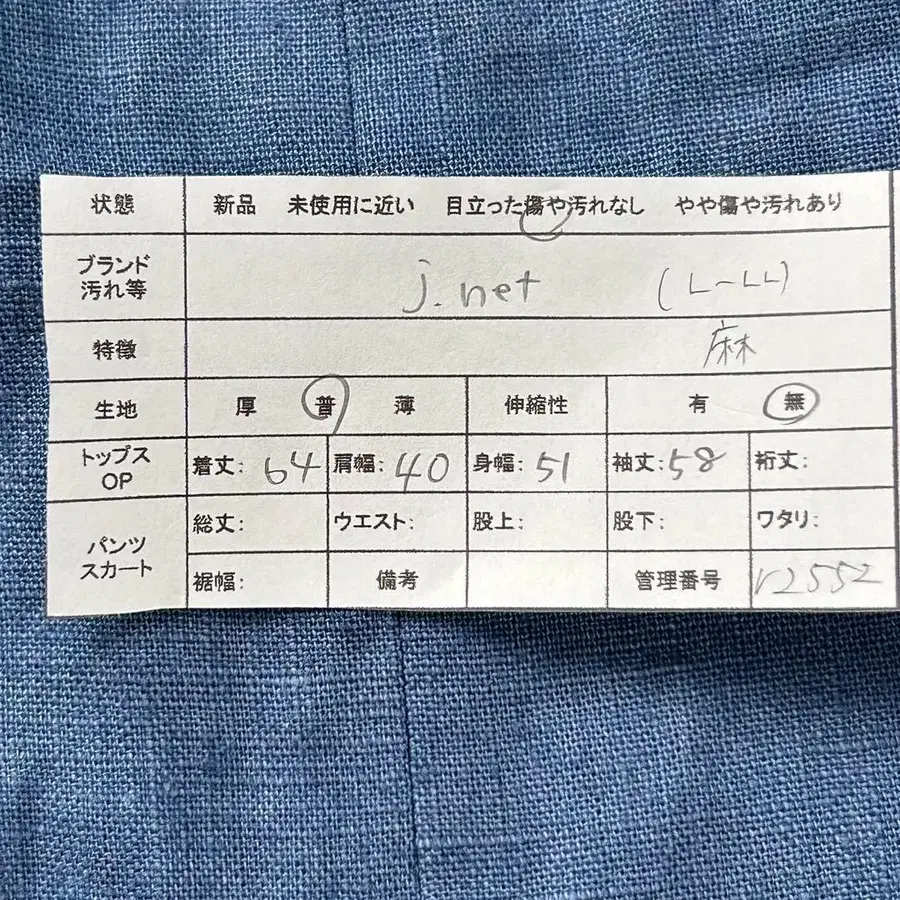 状態 新品 未使用に近い 目立った傷や汚れなし やや傷や汚れあり
ブランド
汚れ等 j.net (L-LL)
特徴 麻
生地 厚 普 薄 伸縮性 有 無
トップス
OP 着丈: 64 肩幅: 40 身幅: 51 袖丈: 58 裄丈:
パンツ
スカート 総丈: ウエスト: 股上: 股下: ワタリ:
裾幅: 備考 管理番号 r2552